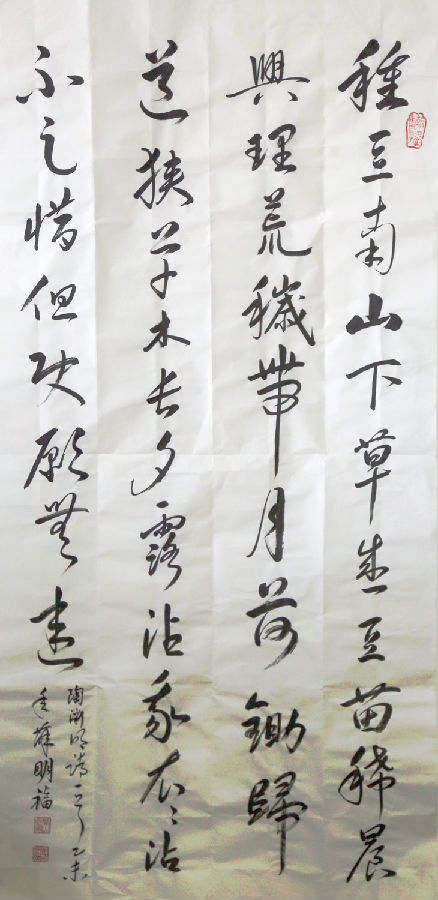 種豆南山下草盛豆苗稀晨
興理荒穢帶月荷鋤歸
道狹草木長夕露沾我衣〻沾
不足惜但使願無違
陶淵明詩一首乙未
年薛明福